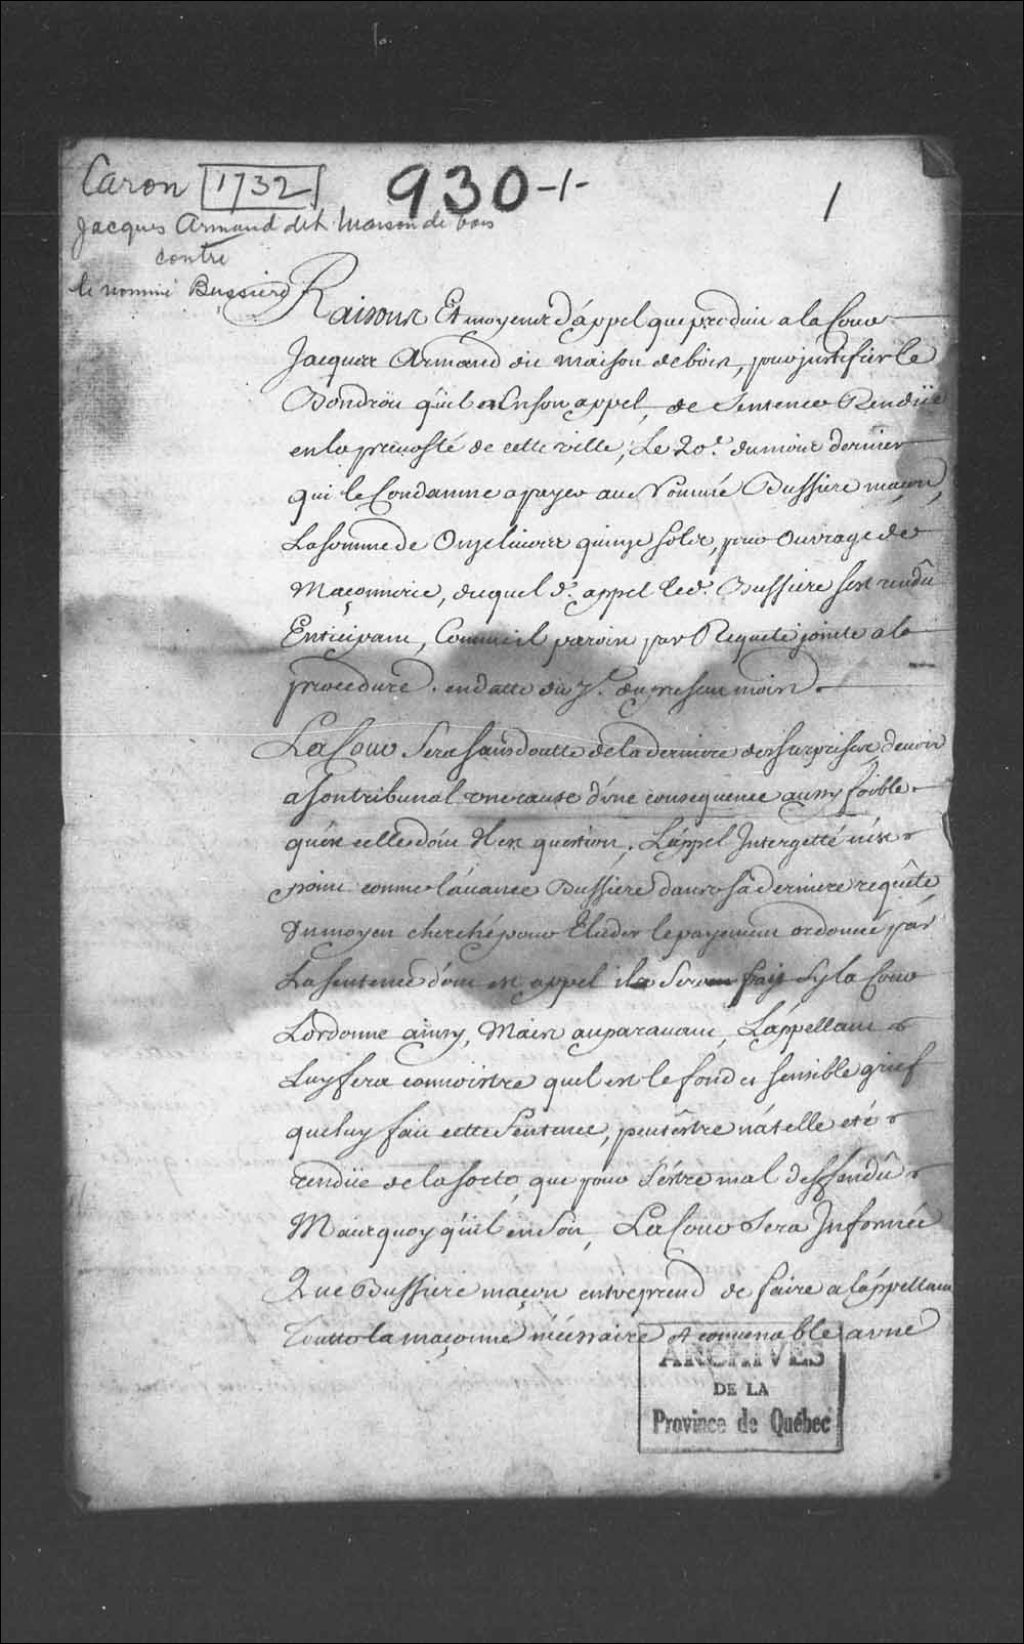 Caron 1732 930-1- 1
Jacques Armand dit Maison de bois
contre
le nommé Bussiere
Raisons Et moyens d'appel que produit a la Cour
Jacques Armand dit maison de bois, pour justifier le
Bondroit qu'il a En son appel, de Sentence Rendüe
en la prevosté de cette ville, Le 20e. du mois dernier
qui le Condamne a payer au Nommé Bussiere maçon,
La somme de Onze livres quinze sols, pour Ouvrage de
Maçonnerie, duquel d. appel led. Bussiere s'est rendû
Enticipant, Comme il paroist par Requete jointe a la
procedure. en datte du 7e. du present mois.
La Cour Sera sans doutte de la derniere des surprises, de voir
a son tribunal une cause d'une consequence aussy foible
qu'est celle dont Il est question, L'appel Intergetté n'est
point comme l'avance Bussiere dans sa derniere requête,
Un moyen cherché pour Eluder le payement ordonné par
La sentence dont est appel il Sera fait Sy la Cour
L'ordonne ainsy, Mais auparavant, L'appellant
Luy fera connoistre quel est le fond et sensible grief
que luy fait cette Sentence, peut être n'at'elle eté
rendüe de la sorte, que pour s'être mal deffendû
Mais quoy qu'il en Soit, La Cour Sera Informée
Que Bussiere maçon entreprend de faire a l'appellant
Toutte la maçonne nécessaire et convenable a une
ARCHIVES
DE LA
Province de Québec